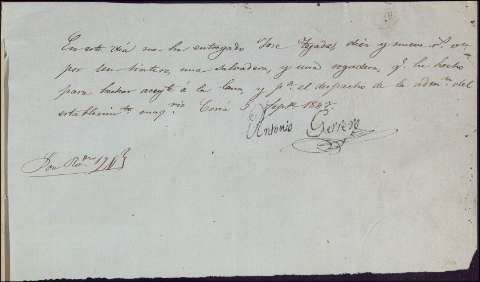 En este dia me ha entregado Jose Tejada, diez y nueve r.s v.n
por un tintero, una salvadera, y una regadera, q.e ha hecho
para hechar aceyte á la                y p.a el despacho de la adm.on del
establecim.to                Sept.e
Antonio Gerrero
Son R.s v.n 19